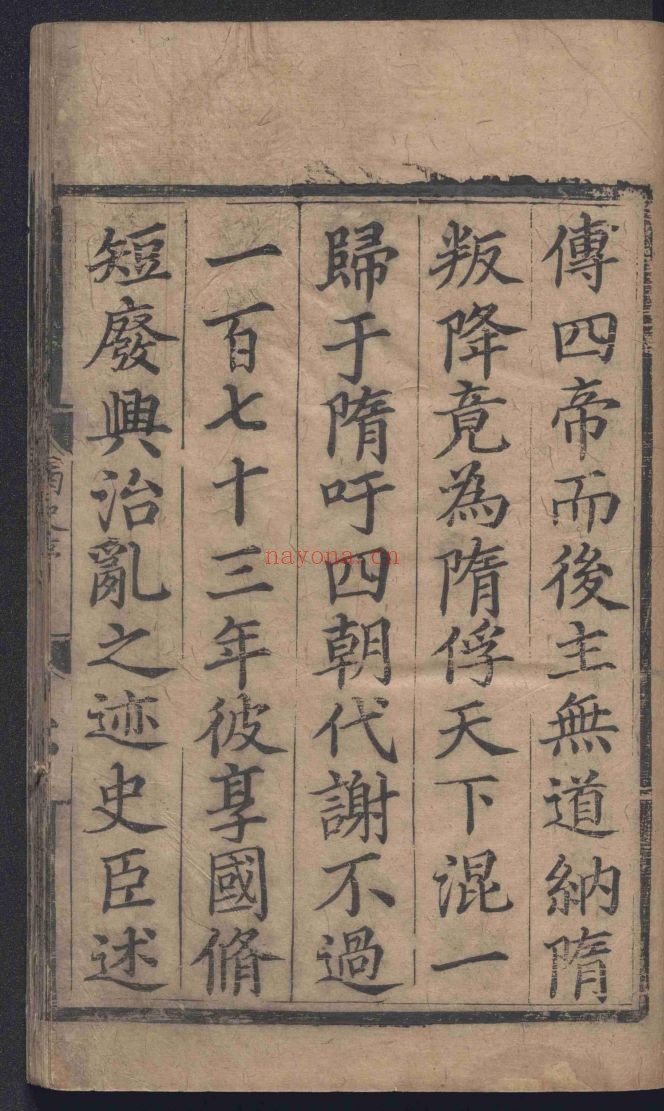 傳四帝而後主無道納隋
叛降竟為隋俘天下混一
歸于隋吁四朝代謝不過
一百七十三年彼享國脩
短廢興治亂之迹史臣述
nayona.cn